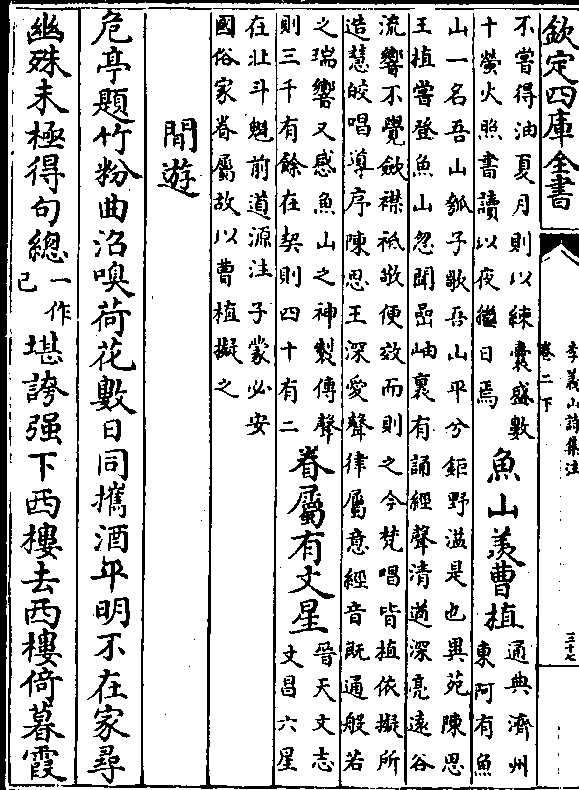 欽定四庫全書
李義山詩集注
卷二下
三十七
不嘗得油夏月則以練囊盛數
十螢火照書讀以夜繼日焉
魚山羨曹植
通典濟州
東阿有魚
山一名吾山瓠子歌吾山平兮鉅野溢是也異苑陳思
王植嘗登魚山忽聞嵒岫裏有誦經聲清遒深亮遠谷
流響不覺斂襟祗敬便效而則之今梵唱皆植依擬所
造慧皎唱導序陳思王深愛聲律屬意經音既通般若
之瑞響又感魚山之神製傳聲
則三千有餘在契則四十有二
眷屬有文星
晉天文志
文昌六星
在北斗魁前道源注子蒙必安
國俗家眷屬故以曹植擬之
閒遊
危亭題竹粉曲沼嗅荷花數日同擕酒平明不在家尋
幽殊未極得句總一作已堪誇强下西樓去西樓倚暮霞